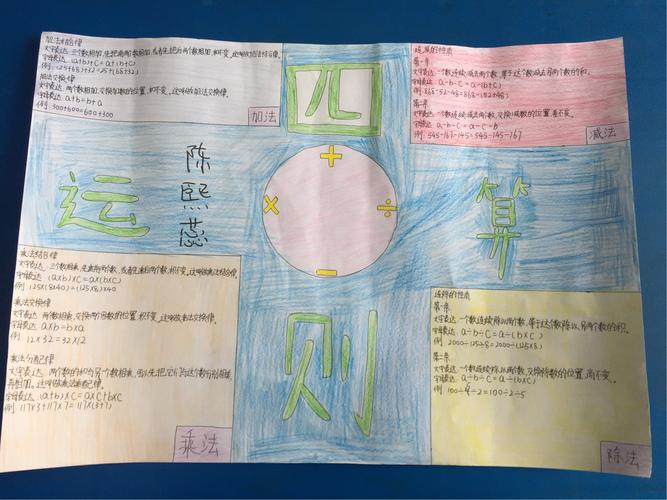 加法结合律
文字表达:三个数相加,先把前两个数相加,或者先把后两个数相加,和不变,这叫做加法结合律。
字母表达:(a+b)+c=a+(b+c)
例:(25+68)+32=25+(68+32)
加法交换律
文字表达:两个数相加,交换加数的位置,和不变,这叫做加法交换律。
字母表达:a+b=b+a
例:300+600=600+300
加法
四
连减的性质
第一条
文字表达:一个数连续减去两个数,等于这个数减去另两个数的和。
字母表达:a-b-c=a-(b+c)
例:868-52-48=868-(52+48)
第二条
文字表达:一个数连续减去两个数,交换减数的位置,差不变。
字母表达:a-b-c=a-c-b
例:545-167-145=545-145-167
减法
运
陈熙蕊
+
×
÷
-
算
乘法结合律
文字表达:三个数相乘,先乘前两个数,或者先乘后两个数,积不变,这叫做乘法结合律。
字母表达:(a×b)×c=a×(b×c)
例:125×(8×40)=(125×8)×40
乘法交换律
文字表达:两个数相乘,交换两个因数的位置,积不变,这叫做乘法交换律。
字母表达:a×b=b×a
例:12×32=32×12
乘法分配律
文字表达:两个数的和与另个数相乘,可以先把它们与这个数分别相乘,
再相加。这叫做乘法分配律。
字母表达:(a+b)×c=a×c+b×c
例:117×3+117×7=117×(3+7)
乘法
则
连除的性质
第一条
文字表达:一个数连续除以两个数,等于这个数除以另两个数的积。
字母表达:a÷b÷c=a÷(b×c)
例:2000÷125÷8=2000÷(125×8)
第二条
文字表达:一个数连续除以两个数,交换除数的位置,商不变。
字母表达:a÷b÷c=a÷(b×c)
例:100÷5÷2=100÷2÷5
除法